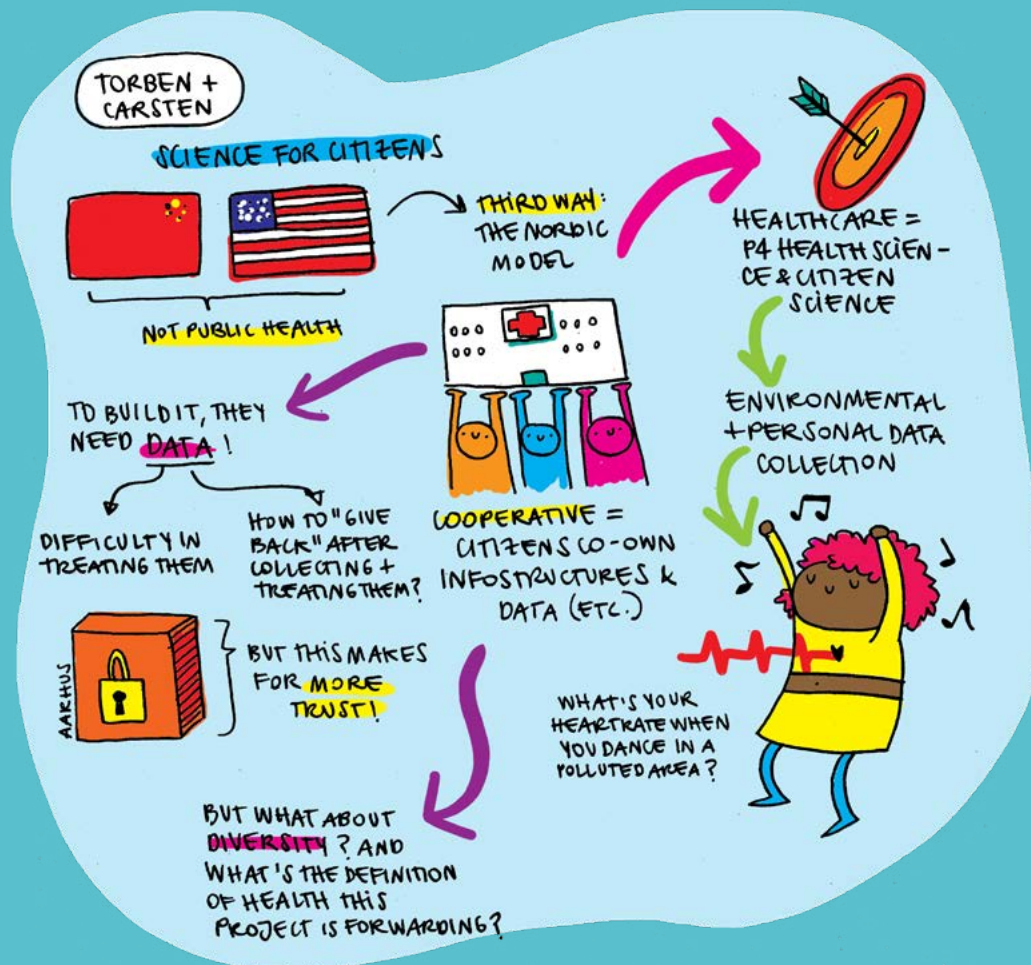 TORBEN +
CARSTEN
SCIENCE FOR CITIZENS
THIRD WAY:
THE NORDIC
MODEL
NOT PUBLIC HEALTH
HEALTHCARE =
P4 HEALTH SCIEN-
CE & CITIZEN
SCIENCE
ENVIRONMENTAL
+ PERSONAL DATA
COLLECTION
TO BUILD IT, THEY
NEED DATA!
DIFFICULTY IN
TREATING THEM
HOW TO "GIVE
BACK" AFTER
COLLECTING +
TREATING THEM?
COOPERATIVE =
CITIZENS CO-OWN
INFOSTRUCTURES &
DATA (ETC.)
AARHUS
BUT THIS MAKES
FOR MORE
TRUST!
WHAT'S YOUR
HEARTRATE WHEN
YOU DANCE IN A
POLLUTED AREA?
BUT WHAT ABOUT
DIVERSITY? AND
WHAT'S THE DEFINITION
OF HEALTH THIS
PROJECT IS FORWARDING?